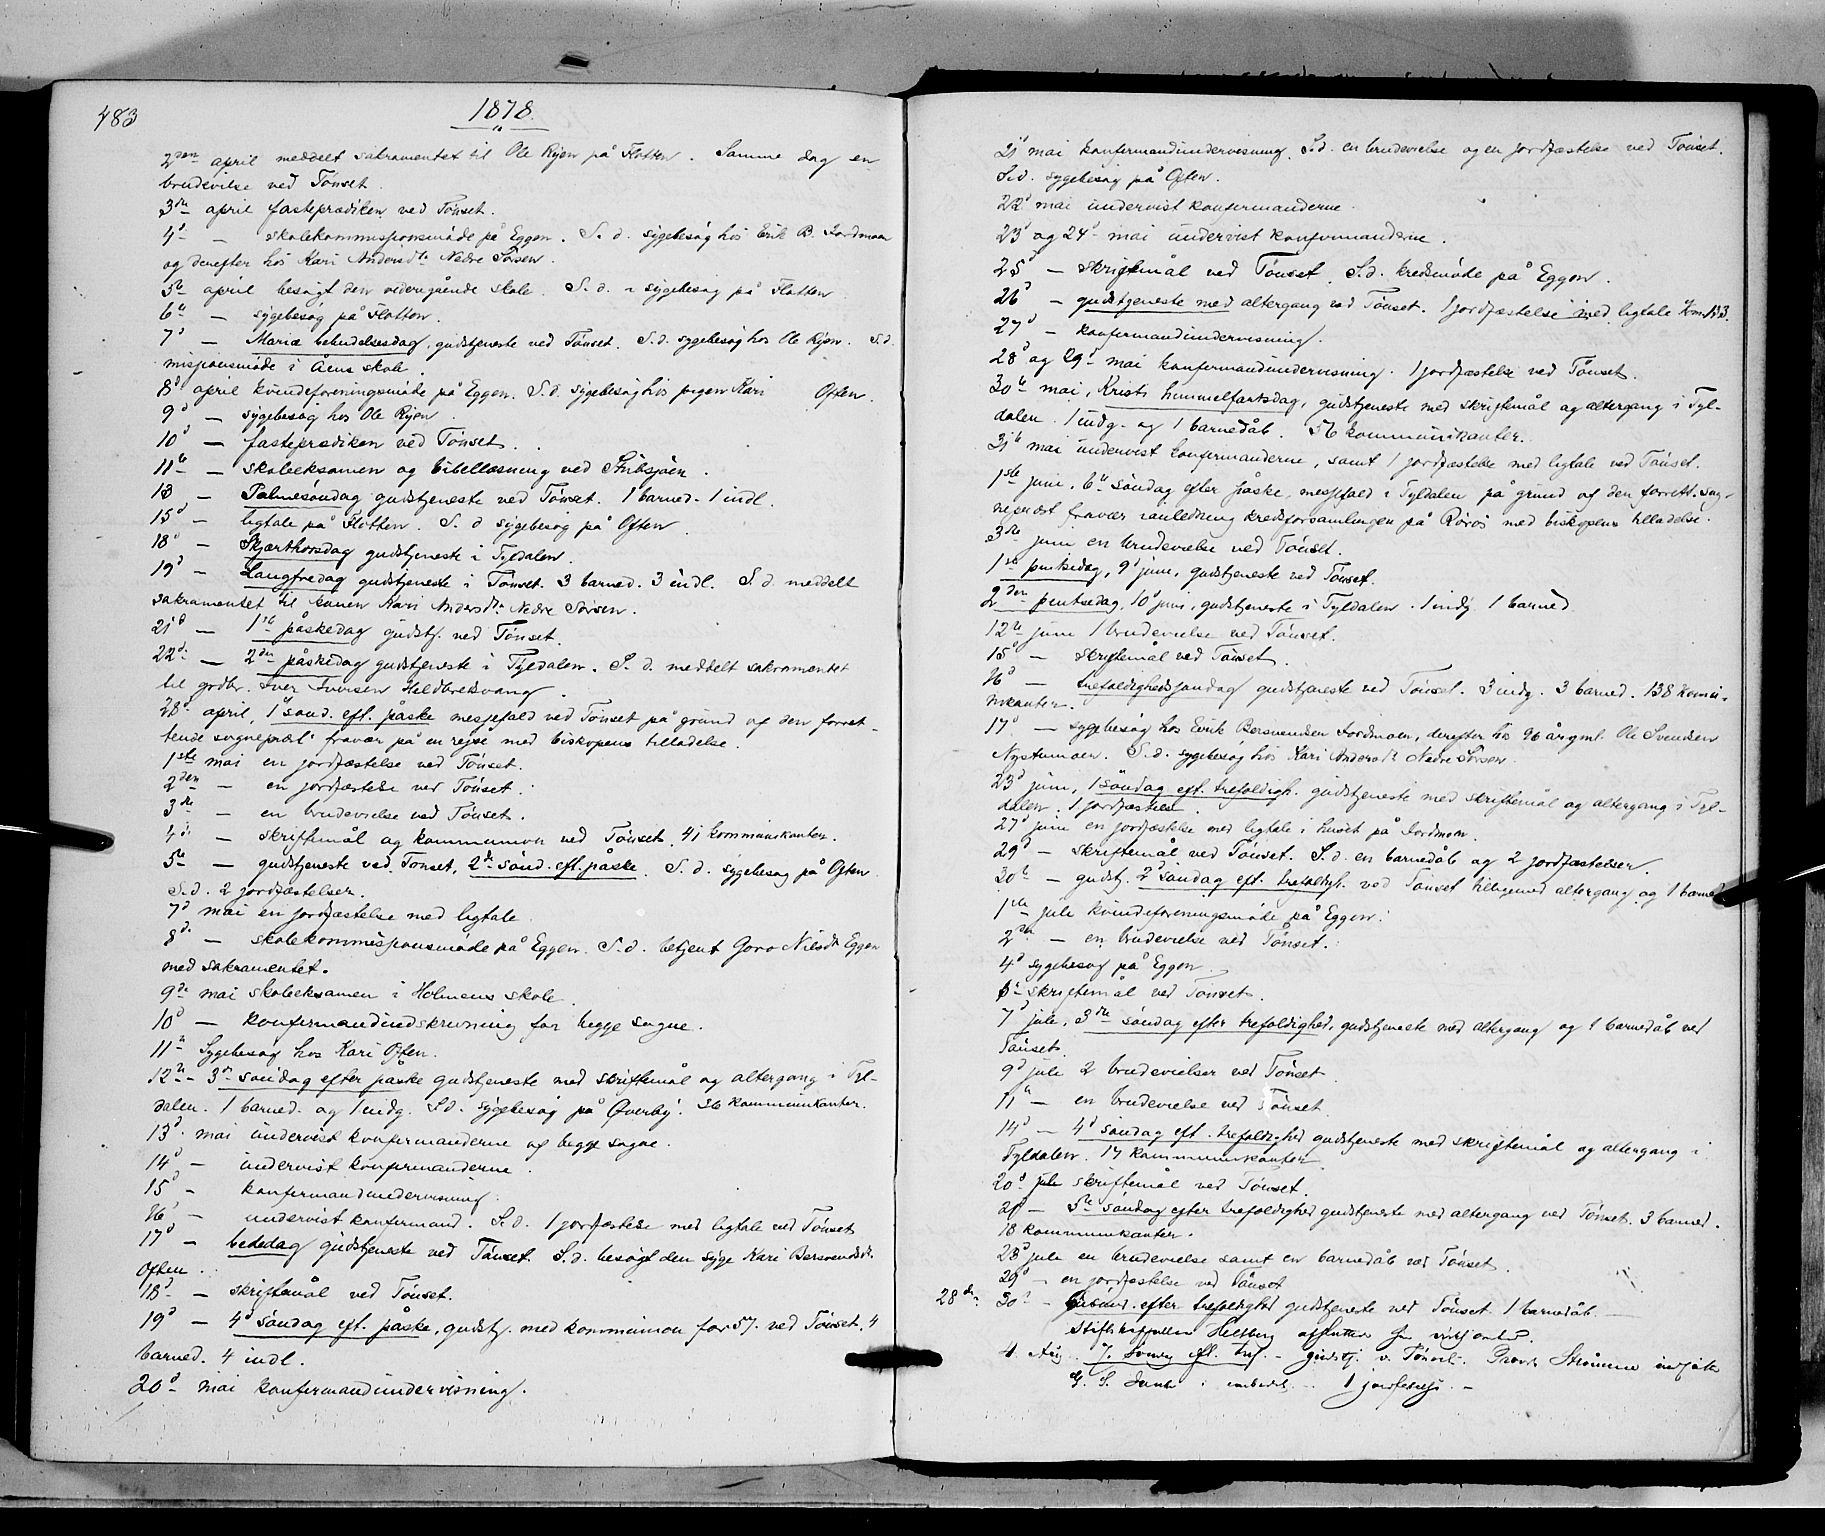 483
1878.
2den april meddelt sakramentet til Ole Rÿen på Flotten. Samme dag en
brudevielse ved Tönset.
3die april fasteprædiken ved Tönset.
4d — skolekommissionsmöde på Eggen. S. d. sygebesög hos Erik B. Jordmoen
og derefter hos Kari Andersdtr Nedre Lorsen.
5te april besögt den videregående skole. S. d. sygebesög på Flotten
6te — sygebesög på Flotten.
7d — Mariæ bebudelsesdag, gudstjeneste ved Tönset. S. d. sygebesög hos Ole Rÿen. S.d.
missionsmöde i Åens skole.
8d april kvindeforeningsmöde på Eggen. S.d. sygebesög hos pigen Kari Often.
9d — sygebesög hos Ole Rÿen.
10d — fasteprædiken ved Tönset.
11te — skoleeksamen og bibellæsning ved Stubsjöen.
13 — Palmesöndag gudstjeneste ved Tönset. 1 barned. 1 indl.
15d — ligtale på Flotten. S. d sygebesög på Often.
18d — Skjærthorsdag gudstjeneste i Tyldalen.
19d — Langfredag gudstjeneste i Tönset. 3 barned. 3 indl. S. d. meddelt
sakramentet til konen Kari Andersdtr Nedre Lorsen.
21d — 1ste påskedag gudstj. ved Tönset.
22d — 2den påskedag gudstjeneste i Tyldalen. S. d. meddelt sakramentet
til grdbr. Iver Iversen Heldbrekvang.
28d april, 1ste sönd. eft. påske messefald ved Tönset på grund af den forret-
tende sognepræsts fravær på en rejse med biskopens tilladelse.
1ste mai en jordfæstelse ved Tönset.
2den — en jordfæstelse ved Tönset.
3die — en brudevielse ved Tönset.
4d — skriftemål og kommunion ved Tönset. 41 kommunikanter.
5te — gudstjeneste ved Tönset, 2d sönd. eft. påske. S. d. sygebesög på Often
S.d. 2 jordfæstelser.
7d mai en jordfæstelse med ligtale.
8d — skolekommissionsmöde på Eggen. S. d. betjent Goro Nilsdtr Eggen
med sakramentet.
9de mai skoleeksamen i Holmens skole.
10d — konfirmandindskrivning for begge sogne.
11te Sygebesög hos Kari Often.
12te — 3die söndag efter påske gudstjeneste med skriftemål og altergang i Tyl-
dalen. 1 barned. og 1 indg. S.d. sygebesög på Överby. 36 kommunikanter.
13d mai undervist konfirmanderne af begge sogne.
14d — undervist konfirmanderne.
15d — konfirmandundervisning.
16d — undervist konfirmand. S. d. 1 jordfæstelse med ligtale ved Tönset
17d — bededag gudstjeneste ved Tönset. S. d. besögt den syge Kari Bersvendsdtr.
Often.
18d — skriftemål ved Tönset.
19d — 4d söndag eft. påske, gudstj. med kommunion for 57. ved Tönset. 4
barned. 4 indl.
20d mai konfirmandundervisning.
21 mai konfirmandundervisning. S.d. en brudevielse og en jordfæstelse ved Tönset.
S.d. sygebesög på Often.
22d mai undervist konfirmanderne.
23d og 24d mai undervist konfirmanderne.
25d — skriftemål ved Tönset. S.d. kredsmöde på Eggen.
26d — gudstjeneste med altergang ved Tönset. 1 jordfæstelse med ligtale
27d — konfirmandundervisning.
28d og 29d mai konfirmandundervisning. 1 jordfæstelse ved Tönset.
30te mai, Kristi himmelfartsdag, gudstjeneste med skriftemål og altergang i Tyl-
dalen. 1 indg. og 1 barnedåb. 56 kommunikanter.
31te mai undervist konfirmanderne, samt 1 jordfæstelse med ligtale ved Tönset.
1ste juni, 6te söndag efter påske, messefald i Tyldalen på grund af den forrett. sog-
nepræst fravær i anledning kredsforsamlingen på Röros med biskopens tilladelse.
3die juni en brudevielse ved Tönset.
1ste pintsedag, 9d juni, gudstjeneste ved Tönset.
2den pintsedag, 10d juni, gudstjeneste i Tyldalen. 1 indg. 1 barned.
12te juni 1 brudevielse ved Tönset.
15d — skriftemål ved Tönset.
16d — trefoldighedssöndag gudstjeneste ved Tönset. 3 indg. 3 barned. 138 kommu-
nikanter.
17d — sygebesög hos Erik Bersvendsen Jordmoen, derefter hos 96 år gml. Ole Svendsen
Nystumoen. S.d. sygebesög hos Kari Andersdtr Nedre Lorsen.
23d juni, 1 söndag eft. trefoldigh. gudstjeneste med skriftemål og altergang i Tyl-
dalen. 1 jordfæstelse
27d juni en jordfæstelse med ligtale i huset på Jordmoen.
29d — skriftemål ved Tönset. S.d. en barnedåb og 2 jordfæstelser.
30te — gudstj. 2d söndag eft. trefoldigh. ved Tönset tilligemed altergang og 1 barned.
1ste juli kvindeforeningsmöde på Eggen.
2den — en brudevielse ved Tönset.
4d sygebesög på Eggen.
6te skriftemål ved Tönset.
7d juli, 3die söndag efter trefoldighed, gudstjeneste med altergang og 1 barnedåb ved
Tönset.
9d juli 2 brudevielser ved Tönset.
11te — en brudevielse ved Tönset.
14d — 4d söndag eft. trefoldighed gudstjeneste med skriftemål og altergang i
Tyldalen. 17 kommunikanter.
20d juli skriftemål ved Tönset.
21 — 5te söndag efter trefoldighed gudstjeneste med altergang ved Tönset. 3 barned.
18 kommunikanter.
23d juli en brudevielse samt en barnedåb ved Tönset.
29d — en jordfæstelse ved Tönset
28de 30d — efter trefoldighed gudstjeneste ved Tönset. 1 barnedåb. —
Stiftskapellan Helberg afslutter sin
4. Aug. 7. Söndag eft. tref. - gudstj. v. Tönset. Provst Strömme
G. S. i embedet. 1 jordfæstelse. —